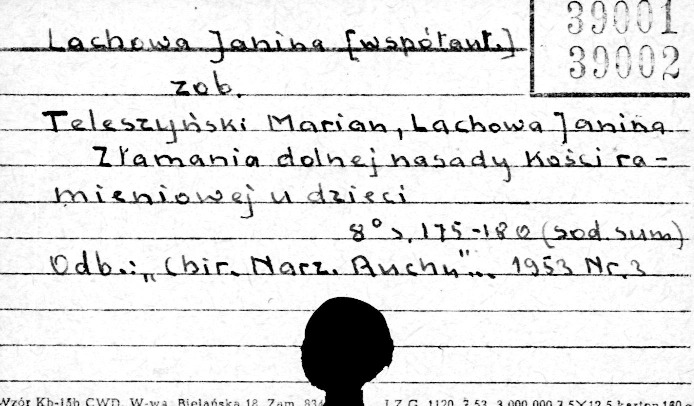 39001
39002
Lachowa Janina [współaut.]
zob.
Teleszyński Marian, Lachowa Janina
Złamania dolnej nasady kości ra-
mieniowej u dzieci
8° s. 175-180 (sod. sum)
Odb.: „Chir. Narz. Ruchu"... 1953 Nr. 3
Wzór Kb-15b CWD. W-wa, Bielańska 18. Zam. 834
LZG. 1120. 7.53. 3.000.000 7,5×12,5 karton 180 g